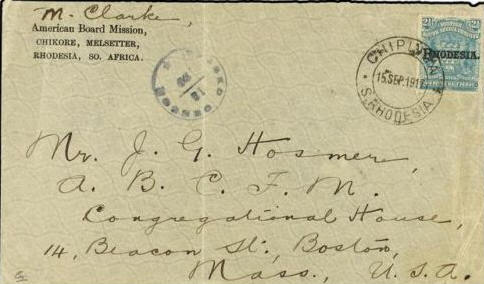 M. Clarke,
American Board Mission,
CHIKORE, MELSETTER,
RHODESIA, SO. AFRICA.
RHODESIA.
15 SEP 191
S. RHODESIA
Mr. J. G. Hosmer,
A. B. C. F. M.
Congregational House,
14, Beacon St., Boston,
Mass., U.S.A.